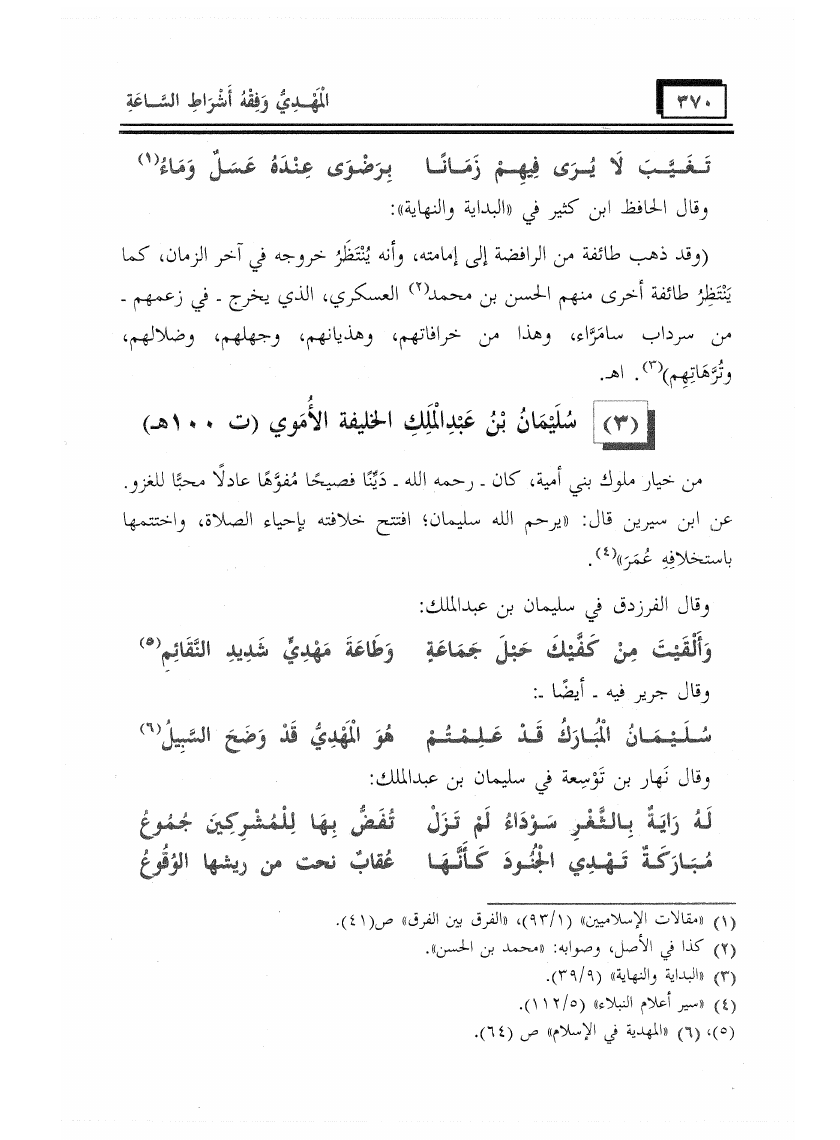 ٣٧٠
الْمَهْدِيُّ وَفِقْهُ أَشْرَاطِ السَّاعَةِ
تَغَيَّبَ لَا يُرَى فِيهِمْ زَمَانًا بِرَضْوَى عِنْدَهُ عَسَلٌ وَمَاءُ(١)
وقال الحافظ ابن كثير في «البداية والنهاية»:
(وقد ذهب طائفة من الرافضة إلى إمامته، وأنه يُنْتَظَرُ خروجه في آخر الزمان، كما
يَنْتَظِرُ طائفة أخرى منهم الحسن بن محمد(٢) العسكري، الذي يخرج ـ في زعمهم ـ
من سرداب سامَرَّاء، وهذا من خرافاتهم، وهذيانهم، وجهلهم، وضلالهم،
وتُرَّهَاتِهِم)(٣). اهـ.
(٣) سُلَيْمَانُ بْنُ عَبْدِالْمَلِكِ الخليفة الأُمَوي (ت ١٠٠هـ)
من خيار ملوك بني أمية، كان ـ رحمه الله ـ دَيِّنًا فصيحًا مُفوَّهًا عادلًا محبًّا للغزو.
عن ابن سيرين قال: «يرحم الله سليمان؛ افتتح خلافته بإحياء الصلاة، واختتمها
باستخلافِهِ عُمَرَ»(٤).
وقال الفرزدق في سليمان بن عبدالملك:
وَأَلْقَيْتَ مِنْ كَفَّيْكَ حَبْلَ جَمَاعَةٍ وَطَاعَةَ مَهْدِيٍّ شَدِيدِ النَّقَائِمِ(٥)
وقال جرير فيه ـ أيضًا ـ:
سُلَيْمَانُ الْمُبَارَكُ قَدْ عَلِمْتُمْ هُوَ الْمَهْدِيُّ قَدْ وَضَحَ السَّبِيلُ(٦)
وقال نَهار بن تَوْسِعة في سليمان بن عبدالملك:
لَهُ رَايَةٌ بِالثَّغْرِ سَوْدَاءُ لَمْ تَزَلْ تُفَضُّ بِهَا لِلْمُشْرِكِينَ جُمُوعُ
مُبَارَكَةٌ تَهْدِي الْجُنُودَ كَأَنَّهَا عُقابٌ نحت من ريشها الوُقُوعُ
(١) «مقالات الإسلاميين» (٩٣/١)، «الفرق بين الفرق» ص(٤١).
(٢) كذا في الأصل، وصوابه: «محمد بن الحسن».
(٣) «البداية والنهاية» (٣٩/٩).
(٤) «سير أعلام النبلاء» (١١٢/٥).
(٥)، (٦) «المهدية في الإسلام» ص (٦٤).